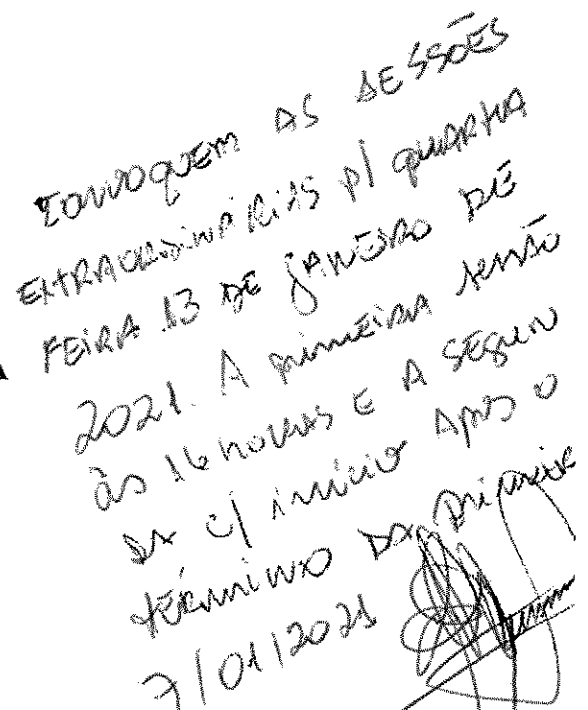 CONVOQUEM AS SESSÕES
EXTRAORDINÁRIAS P/ QUARTA
FEIRA 13 DE JANEIRO DE
2021. A primeira sessão
às 16 horas E A SEGUN
DA c/ início APÓS O
TÉRMINO DA primeira
7/01/2021